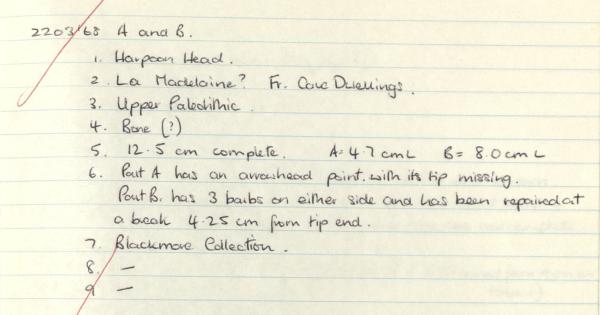 2203/68 A and B.
1. Harpoon Head.
2. La Madelaine? Fr. Cave Dwellings.
3. Upper Paleolithic.
4. Bone (?)
5. 12.5 cm complete. A= 4.7 cm L B= 8.0 cm L
6. Part A has an arrowhead point, with its tip missing.
Part B. has 3 barbs on either side and has been repaired at
a break 4.25 cm from tip end.
7. Blackmore Collection.
8. —
9 —